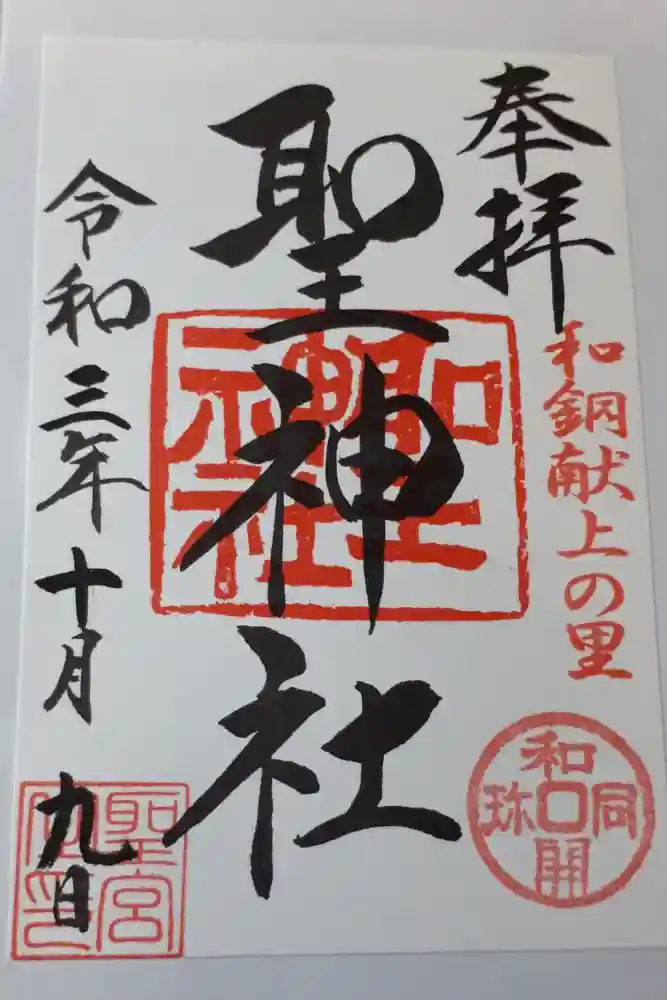 奉拝
和銅献上の里
和同開珎
聖神社
聖神社
令和三年十月九日
聖宮